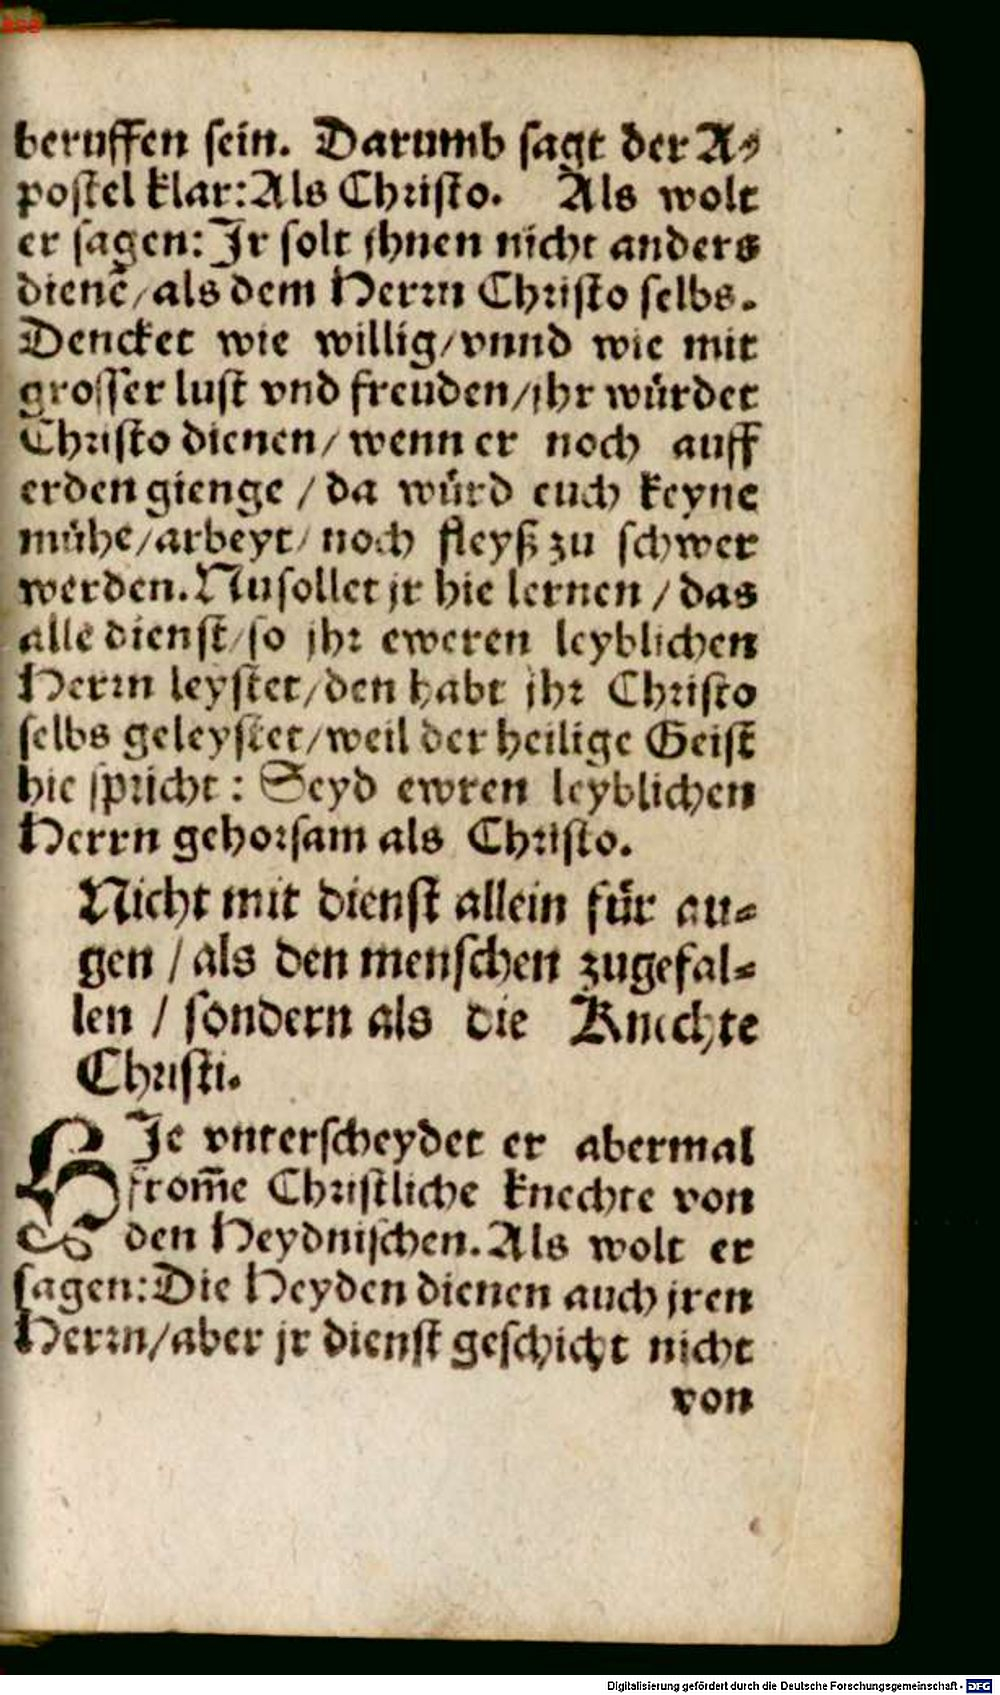 beruffen sein. Darumb sagt der A⸗
postel klar: Als Christo. Als wolt
er sagen: Jr solt jhnen nicht anders
dienẽ / als dem Herrn Christo selbs.
Dencket wie willig / vnnd wie mit
grosser lust vnd freuden / jhr würdet
Christo dienen / wenn er noch auff
erden gienge / da würd euch keyne
mühe / arbeyt / noch fleyß zu schwer
werden. Nu sollet jr hie lernen / das
alle dienst / so jhr eweren leyblichen
Herrn leystet / den habt jhr Christo
selbs geleystet / weil der heilige Geist
hie spricht : Seyd ewren leyblichen
Herrn gehorsam als Christo.
Nicht mit dienst allein für au⸗
gen / als den menschen zugefal⸗
len / sondern als die Knechte
Christi.
HJe vnterscheydet er abermal
from̃e Christliche knechte von
den Heydnischen. Als wolt er
sagen: Die Heyden dienen auch jren
Herrn / aber jr dienst geschicht nicht
von
Digitalisierung gefördert durch die Deutsche Forschungsgemeinschaft - DFG